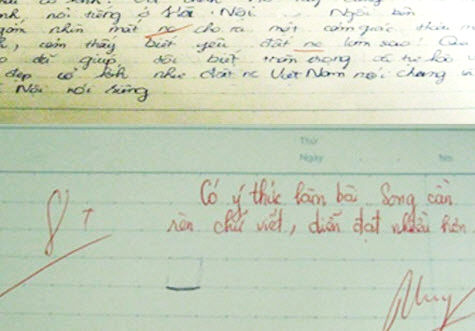 nh, nổi tiếng ở Hà Nội. Ngồi bên
ngắm nhìn mặt nc cho ra một cảm giác
, cảm thấy biết yêu đất nc làm sao! Qua
đó đã giúp tôi biết trân trọng
đẹp có ích như đất nc Việt Nam nói chung và
Nội nói riêng
Thứ
Ngày
Có ý thức làm bài. Song cần
8+
rèn chữ viết, diễn đạt nhiều hơn.